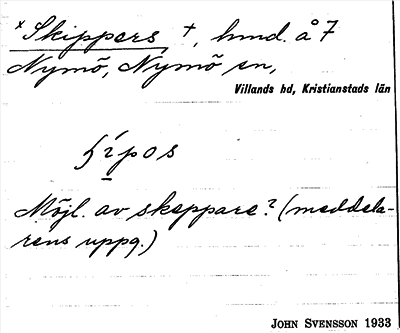 × Skippers †, hmd. å 7
Nymö, Nymö sn,
Villands hd, Kristianstads län
Möjl. av skeppare? (meddela-
rens uppg.)
JOHN SVENSSON 1933